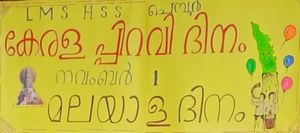 LMS HSS ചെമ്പൂർ
കേരളപ്പിറവി ദിനം
നവംബർ 1
മലയാള ദിനം